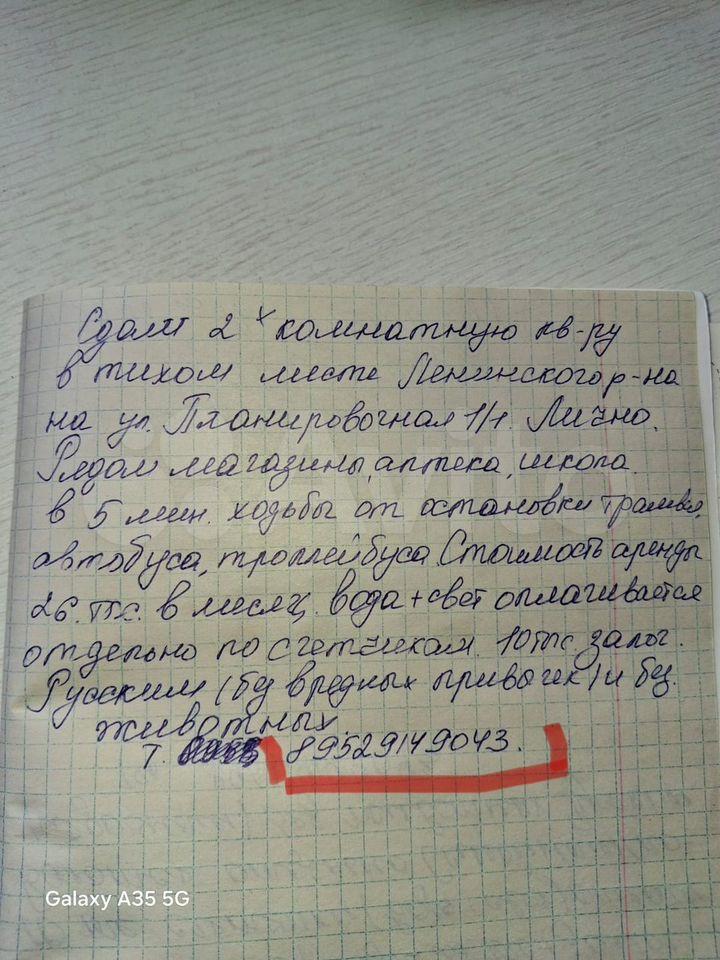 Сдам 2х комнатную кв-ру
в тихом месте Ленинского р-на
на ул. Планировочная 1/1. Лично.
Рядом магазины, аптека, школа.
в 5 мин. ходьбы от остановки трамвая,
автобуса, троллейбуса. Стоимость аренды
26.тыс. в месяц. вода + свет оплачивается
отдельно по счетчикам. 10 тыс залог.
Русским (без вредных привычек) и без
животных.
Т. 89529149043.
Avito
Galaxy A35 5G